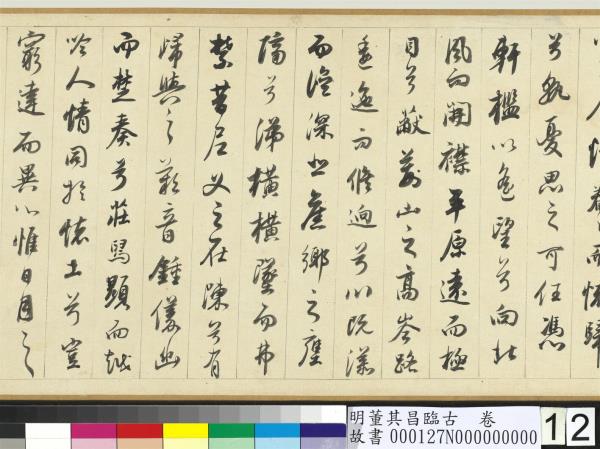 情眷而懷歸
兮孰憂思之可任憑
軒檻以遙望兮向北
風而開襟平原遠而極
目兮蔽荊山之高岑路
逶迤而脩迥兮川既漾
而濟深悲舊鄉之壅
隔兮涕橫橫墜而弗
禁昔尼父之在陳兮有
歸與之歎音鍾儀幽
而楚奏兮莊舄顯而越
吟人情同於懷土兮豈
窮達而異心惟日月之
明董其昌臨古 卷
故書 000127N000000000
12